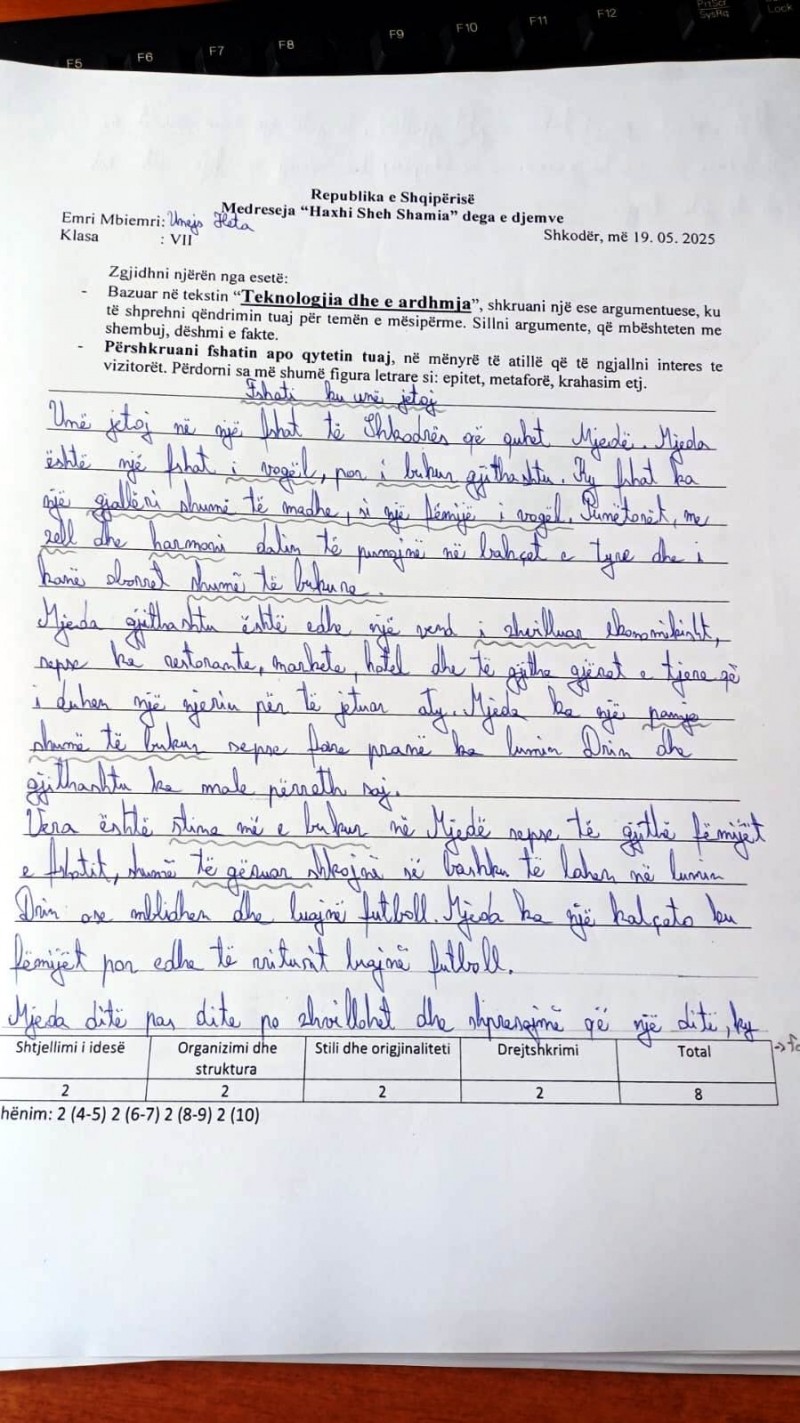 F5 F6 F7 F8 F9 F10 F11 F12 PrtScr SysRq Lock
Republika e Shqipërisë
Medreseja “Haxhi Sheh Shamia” dega e djemve
Emri Mbiemri:
Klasa : VII
Shkodër, më 19. 05. 2025
Zgjidhni njërën nga esetë:
- Bazuar në tekstin “Teknologjia dhe e ardhmja”, shkruani një ese argumentuese, ku
të shprehni qëndrimin tuaj për temën e mësipërme. Sillni argumente, që mbështeten me
shembuj, dëshmi e fakte.
- Përshkruani fshatin apo qytetin tuaj, në mënyrë të atillë që të ngjallni interes te
vizitorët. Përdorni sa më shumë figura letrare si: epitet, metaforë, krahasim etj.
Fshati ku unë jetoj
Unë jetoj në një fshat të Shkodrës që quhet Mjedë. Mjeda
është një fshat i vogël, por i bukur gjithashtu. Ky fshat ka
një gjallëri shumë të madhe, si një fëmijë i vogël. Punëtorët, me
zell dhe harmoni dalin të punojnë në bahçet e tyre dhe i
kanë oborret shumë të bukura.
Mjeda gjithashtu është edhe një vend i zhvilluar ekonomikisht,
sepse ka restorante, markete, hotel dhe të gjitha gjërat e tjera që
i duhen një njeriu për të jetuar aty. Mjeda ka një pamje
shumë të bukur sepse fare pranë ka lumin Drin dhe
gjithashtu ka male përreth saj.
Vera është stina më e bukur në Mjedë sepse të gjithë fëmijët
e fshatit, shumë të gëzuar shkojnë së bashku të lahen në lumin
Drin ose mblidhen dhe luajnë futboll. Mjeda ka një kalçeto ku
fëmijët por edhe të rriturit luajnë futboll.
Mjeda ditë pas dite po zhvillohet dhe shpresojmë që një ditë, ky
Shtjellimi i idesë Organizimi dhe struktura Stili dhe origjinaliteti Drejtshkrimi Total
2 2 2 2 8
hënim: 2 (4-5) 2 (6-7) 2 (8-9) 2 (10)